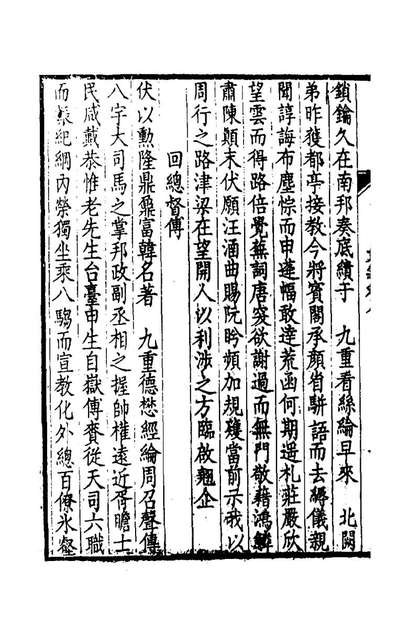 鎖鑰久在南邦奏底績于　九重看絲綸早來　北闕
弟昨獲都亭接教今將賓閣承顏省駢語而去縟儀親
聞諄誨布塵悰而申遠幅敢達荒函何期遥札莊嚴欣
望雲而得路倍覺蕪詞唐突欲謝過而無門敬藉鴻鱗
肅陳顛末伏願汪涵曲賜阮昑頻加規矱當前示我以
周行之路津梁在望開人以利涉之方臨啟翹企
回總督傅
伏以勲隆鼎鼐富韓名著　九重德懋經綸周召聲傳
八字大司馬之掌邦政副丞相之握帥權遠近胥瞻士
民咸戴恭惟老先生台臺申生自嶽傅賚從天司六職
而　紀綱內榮獨坐乘八騶而宣教化外總百僚氷壑